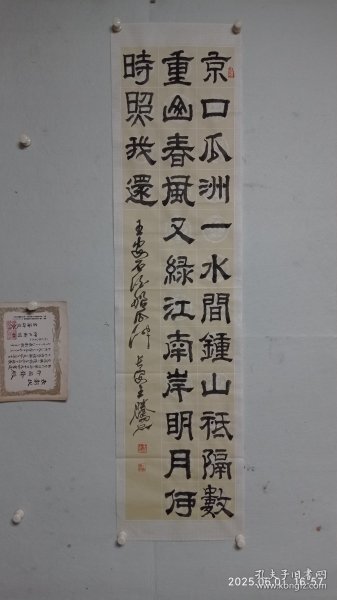 京口瓜洲一水間鍾山祇隔數
重山春風又綠江南岸明月何
時照我還
王安石泊船瓜洲
2025.06.01 16:57
孔夫子旧书网